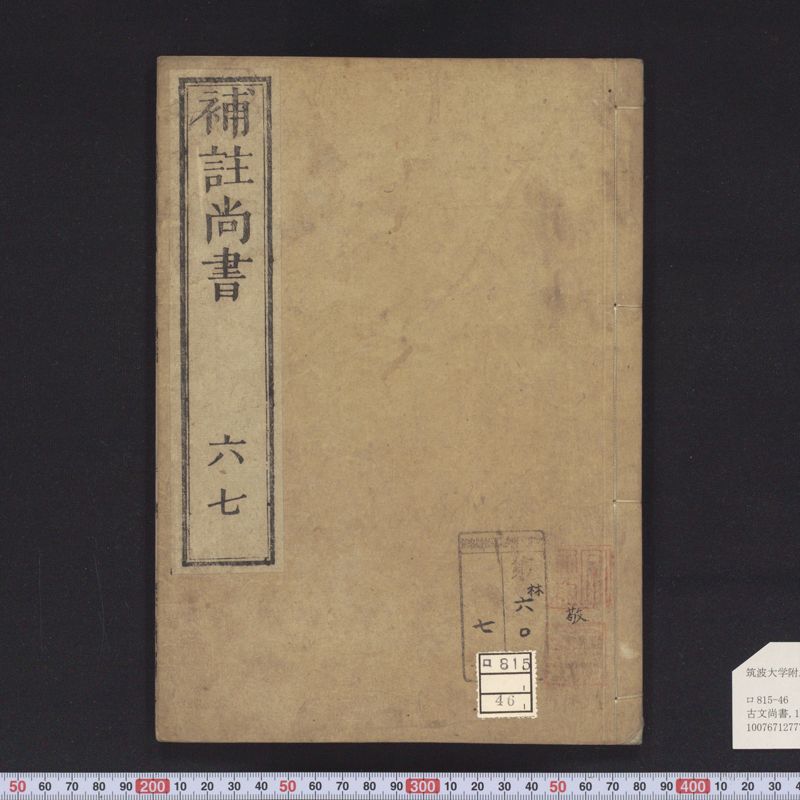 補註尚書
六七
林
六〇
七
敬
ロ815
46
筑波大学附
ロ815-46
古文尚書, 1
1007671277
50 60 70 80 90 200 10 20 30 40 50 60 70 80 90 300 10 20 30 40 50 60 70 80 90 400 10 20 30